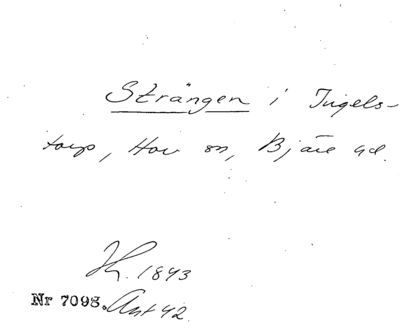 Strängen i Ingels-
torp, Hov sn, Bjäre hd.
H. 1843
Nr 7098. Ant 42